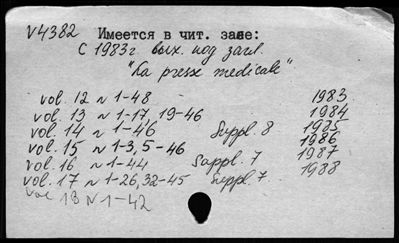 V4382 Имеется в чит. зале:
С 1983г вых. под загл.
"La presse medicale"
vol. 12 N 1-48 1983
vol. 13 N 1-17, 19-46 1984
vol. 14 N 1-46 Suppl. 8 1985
vol. 15 N 1-3, 5-46 1986
vol. 16 N 1-44 Suppl. 7 1987
vol. 17 N 1-26, 32-45 Suppl. 7 1988
vol 18 N 1-42